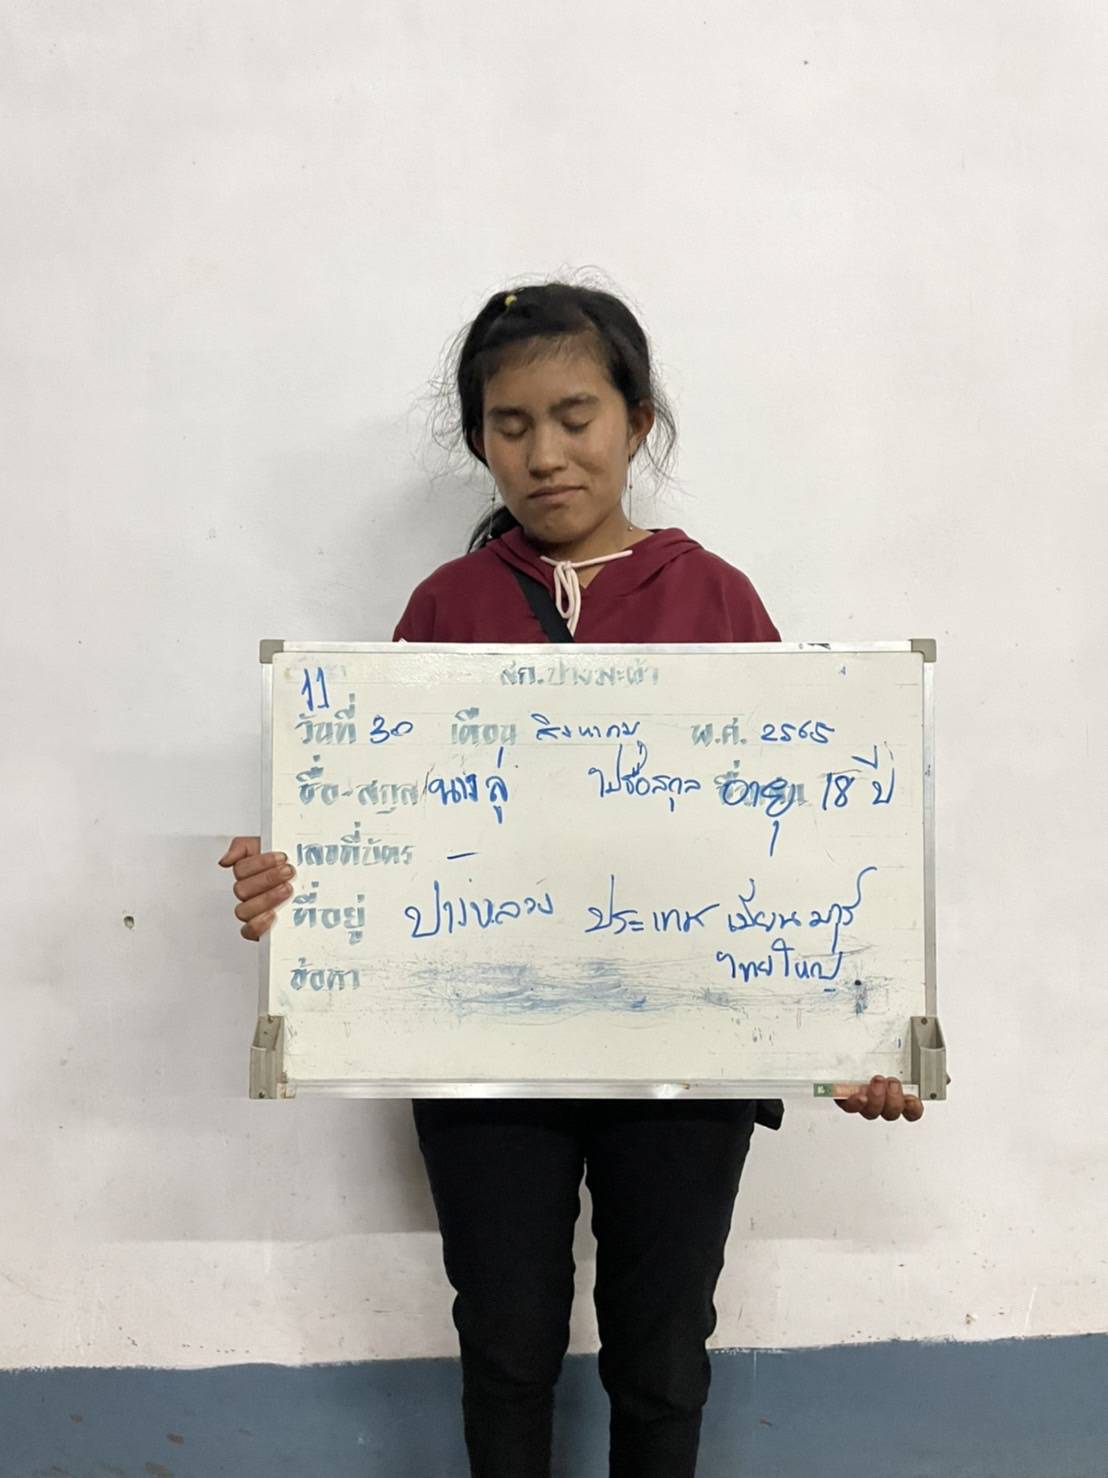 11
สภ.ปางมะผ้า
วันที่ 30 เดือน สิงหาคม พ.ศ. 2565
ชื่อ-สกุล นาง ลู่ ไม่ชื่อสกุล อายุ 18 ปี
เลขที่บัตร -
ที่อยู่ ปางหลวง ประเทศ เมียนมาร์
ไทยใหญ่
ข้อหา